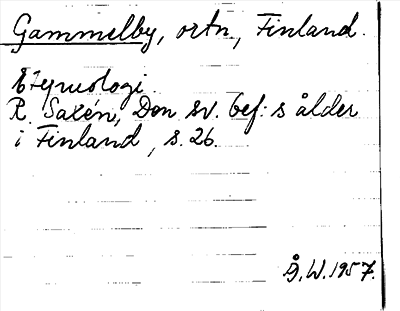 Gammelby, ortn., Finland.
Etymologi.
R. Saxén, Den sv. bef:s ålder
i Finland, s. 26.
Å.W. 1957.